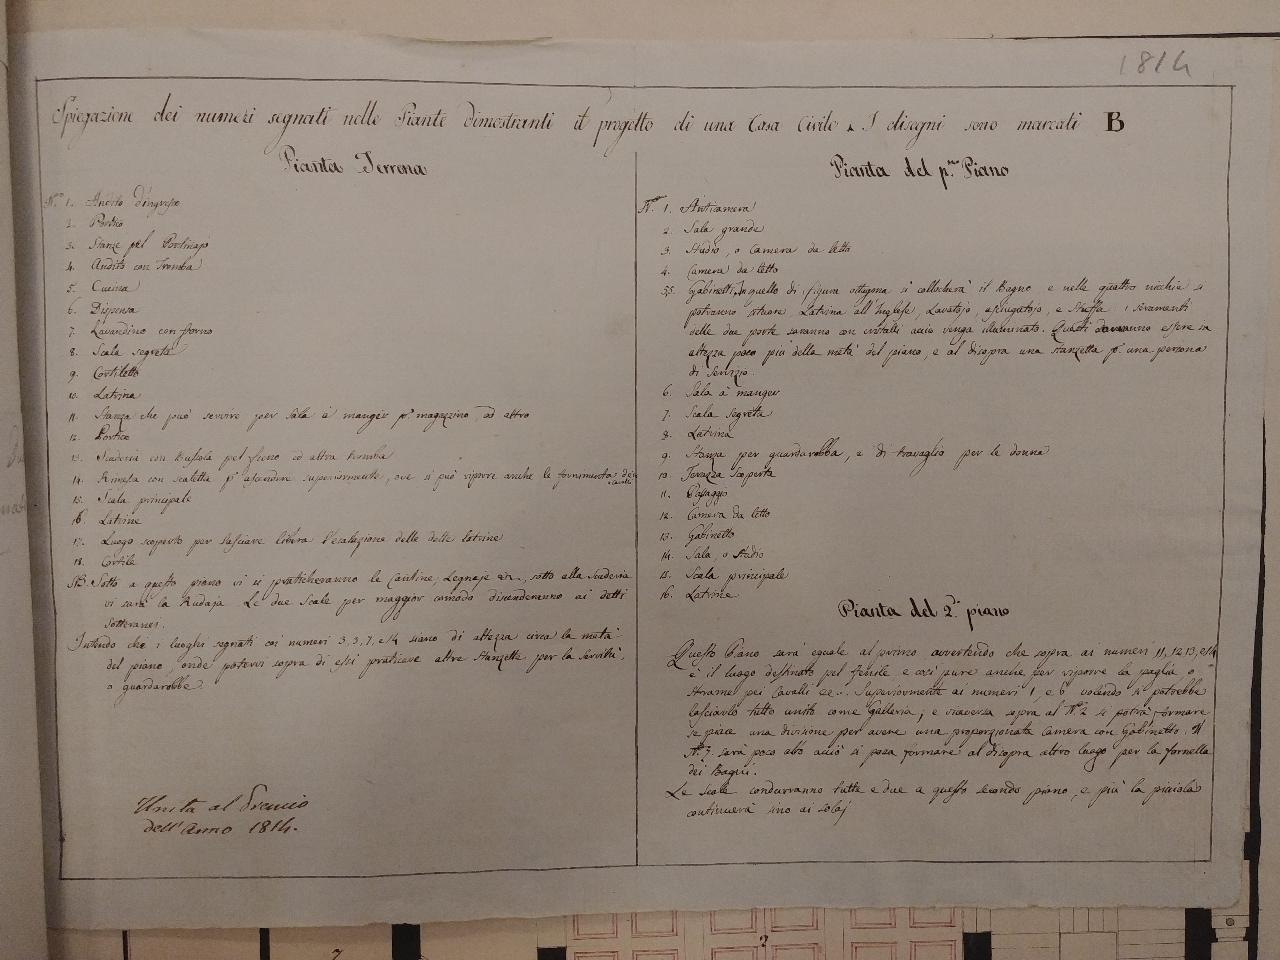 1814
Spiegazione dei numeri segnati nelle Piante dimostranti il progetto di una Casa Civile. I disegni sono marcati B
Pianta Terrena
N.° 1. Andito d'ingresso
2. Portico
3. Stanze pel Portinajo
4. Andito con Tromba
5. Cucina
6. Dispensa
7. Lavandino con forno
8. Scala segreta
9. Cortiletto
10. Latrina
11. Stanza che può servire per Sala à manger p.r magazzino, ad altro
12. Portico
13. Scuderia con Bussola pel fieno ed altra tromba
14. Rimessa con scaletta p.r ascendere superiormente, ove si può riporre anche le fornimenta dei Cavalli
15. Scala principale
16. Latrine
17. Luogo scoperto per lasciare libera l'esalazione delle dette latrine
18. Cortile
NB. Sotto a questo piano vi si praticheranno le Cantine, Legnaje ec., sotto alla Scuderia
vi sarà la Rudaja. Le due Scale per maggior comodo discenderanno ai detti
sotteranei.
Intendo che i luoghi segnati coi numeri 3.3.7. e 14 siano di altezza circa la metà
del piano, onde potervi sopra di essi praticare altre Stanzette per la Servitù,
o guardarobbe.
Unita al Premio
dell'Anno 1814.
Pianta del p.mo Piano
N.° 1. Anticamera
2. Sala grande
3. Studio, o Camera da letto
4. Camera da letto
5.5. Gabinetti. In quello di figura ottagona si collocherà il Bagno e nelle quattro nicchie si
potranno situare, Latrina all'Inglese, Lavatojo, asciugatojo, e Stuffa, i seramenti
delle due porte saranno con cristalli acciò venga illuminato. Questi dovranno essere in
altezza poco più della metà del piano, e al disopra una stanzetta p.r una persona
di servizio.
6. Sala à manger
7. Scala segreta
8. Latrina
9. Stanza per guardarobba, e di travaglio per le donne
10. Terazza scoperta
11. Passaggio
12. Camera da letto
13. Gabinetto
14. Sala, o Studio
15. Scala principale
16. Latrine
Pianta del 2.° piano
Questo Piano sarà eguale al primo avvertendo che sopra ai numeri 11, 12, 13, e 14
è il luogo destinato pel fenile e così pure anche per riporre la paglia o
strame pei Cavalli ec. Superiormente ai numeri 1 e 6 volendo si potrebbe
lasciarlo tutto unito come Galleria; e viceversa sopra al N.° 2 si potrà formare
se piace una divisione per avere una proporzionata Camera con Gabinetto. Il
N.° 5 sarà poco alto acciò si possa formare al disopra altro luogo per la fornella
dei Bagni.
Le scale condurranno tutte e due a questo secondo piano, e più la picciola
continuerà sino ai solaj
7
2